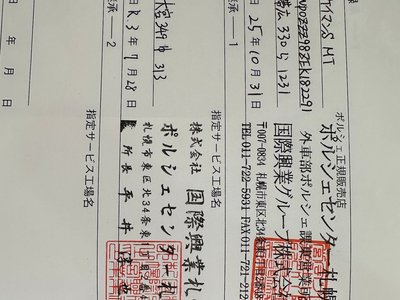 ケイマンS MT
WP0ZZZ98ZEK182291
帯広 330 ら 1231
25 年 10 月 31 日
ポルシェ正規販売店
ポルシェセンター札幌
外車部ポルシェ課
国際興業グループ株式会
〒007-0834 札幌市東区北34
TEL:011-722-5931 FAX:011-721-212
指定サービス工場名
承 ― 1
349 ち 313
R.3 年 7 月 28 日
株式会社 国際興業札
ポルシェセンター札
札幌市東区北34条東
所長 平井
指定サービス工場名
承 ― 2
年 月 日